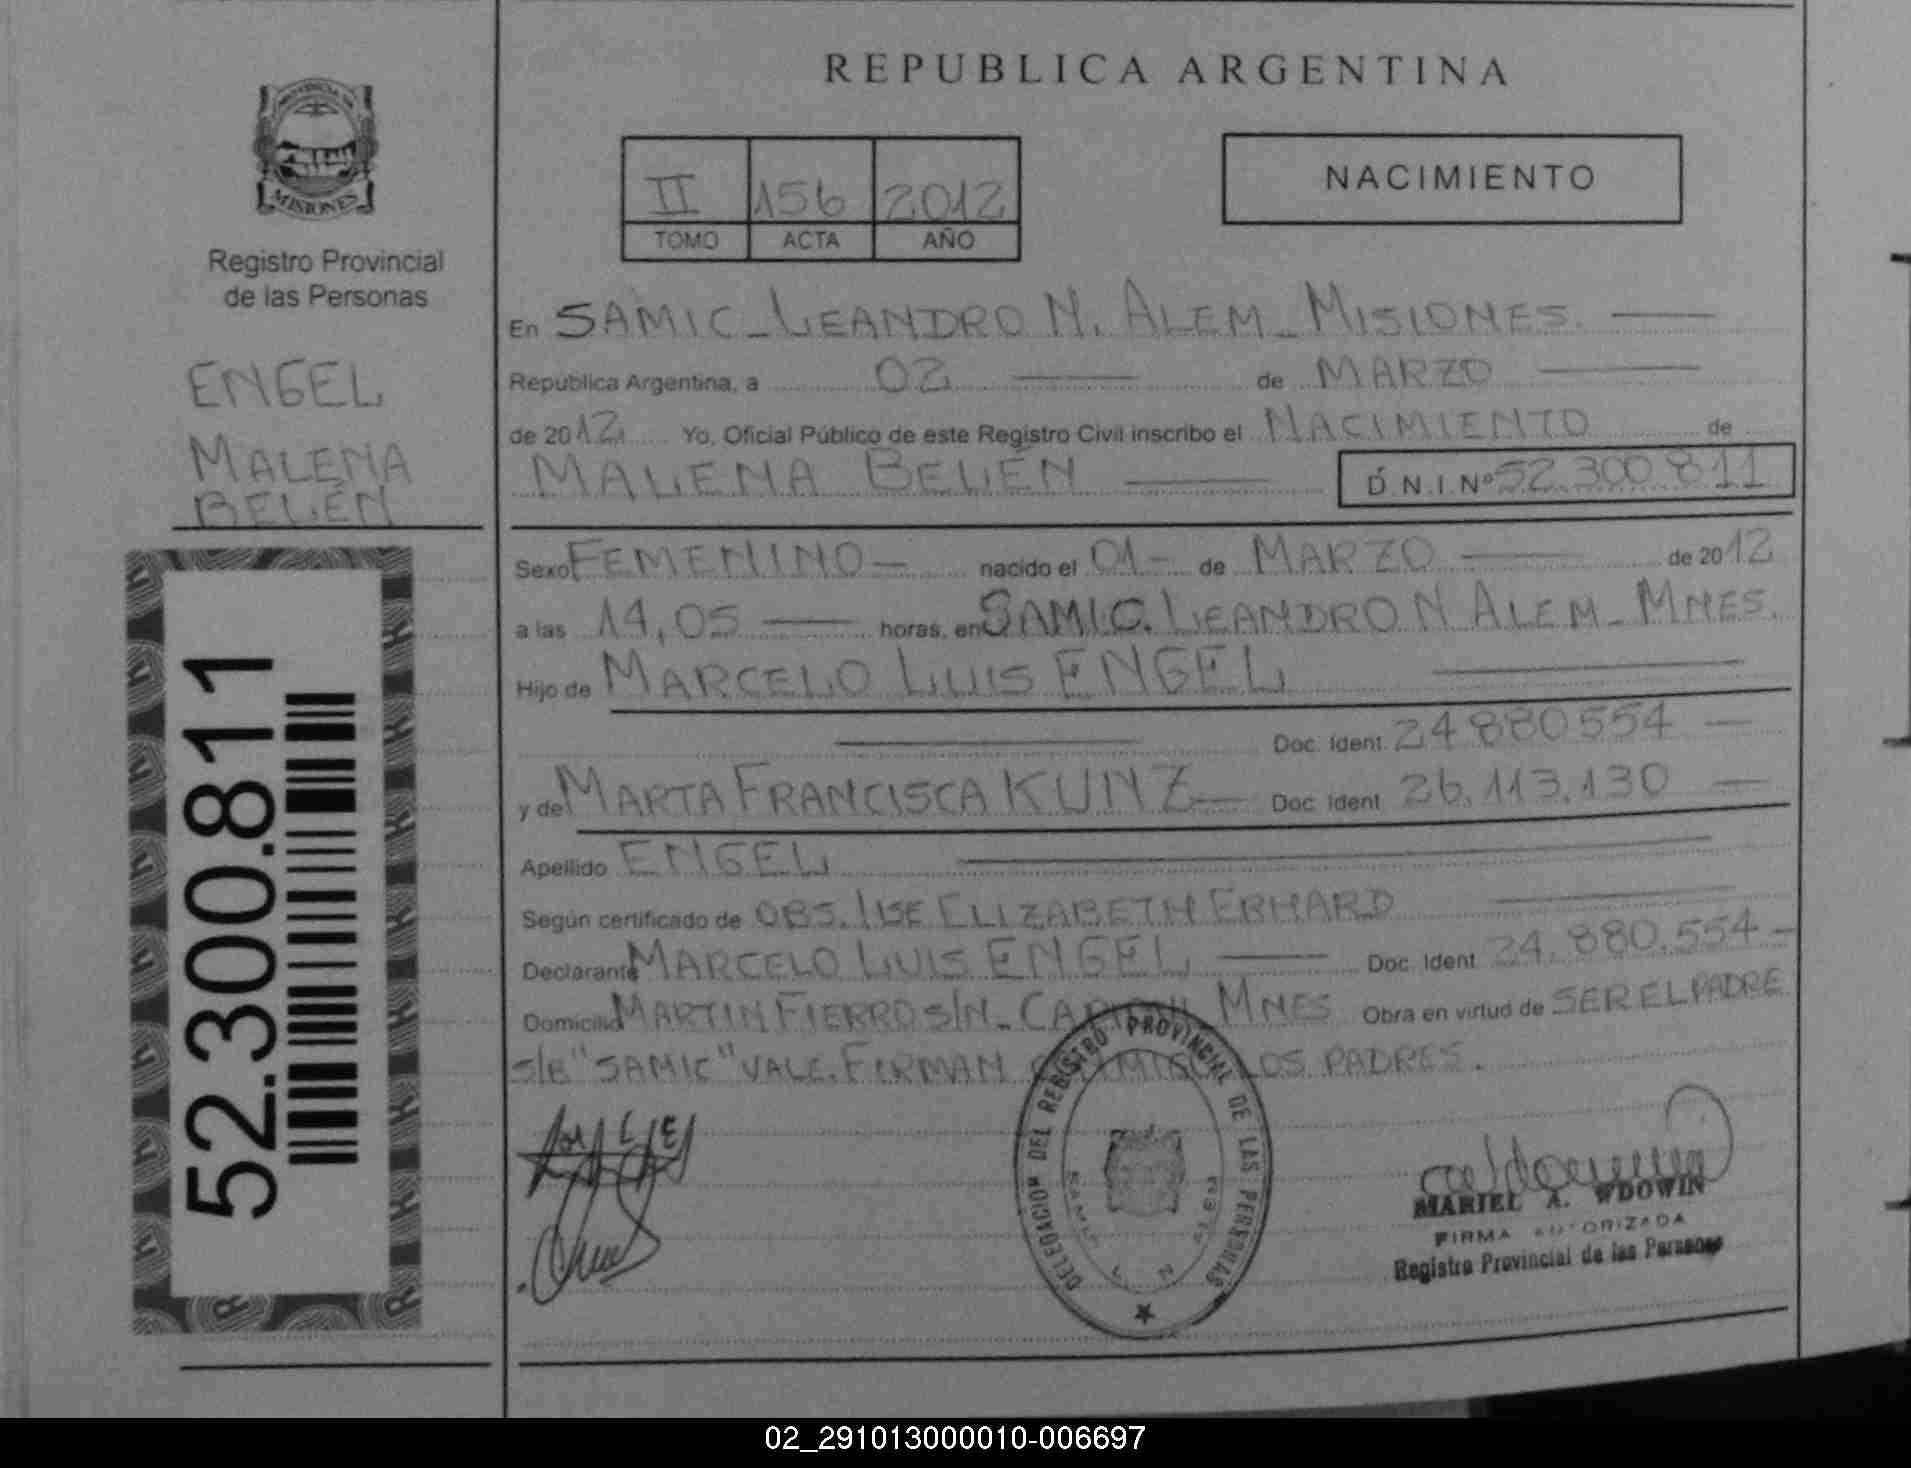 REPUBLICA ARGENTINA
PROVINCIA DE
MISIONES
Registro Provincial
de las Personas
ENGEL
MALENA
BELÉN
52.300.811
II 156 2012
TOMO ACTA AÑO
NACIMIENTO
En SAMIC - LEANDRO N. ALEM - MISIONES.
Republica Argentina, a 02 de MARZO
de 2012 Yo, Oficial Público de este Registro Civil inscribo el NACIMIENTO de
MALENA BELÉN D.N.I.Nº 52.300.811
Sexo FEMENINO - nacido el 01 - de MARZO de 2012
a las 14,05 horas, en SAMIC. LEANDRO N ALEM - MNES.
Hijo de MARCELO LUIS ENGEL
Doc. Ident. 24.880554
y de MARTA FRANCISCA KUNZ Doc. Ident. 26.113.130
Apellido ENGEL
Según certificado de OBS. ILSE ELIZABETH ERHARD
Declarante MARCELO LUIS ENGEL Doc. Ident. 24.880.554 -
Domicilio MARTIN FIERRO S/N - MNES Obra en virtud de SER EL PADRE
S/B "SAMIC" VALE. FIRMAN LOS PADRES.
M L E
DELEGACION DEL REGISTRO PROVINCIAL DE LAS PERSONAS
SAMIC L. N. ALEM
MARIEL A. WDOWIN
FIRMA AUTORIZADA
Registro Provincial de las Personas
02_291013000010-006697